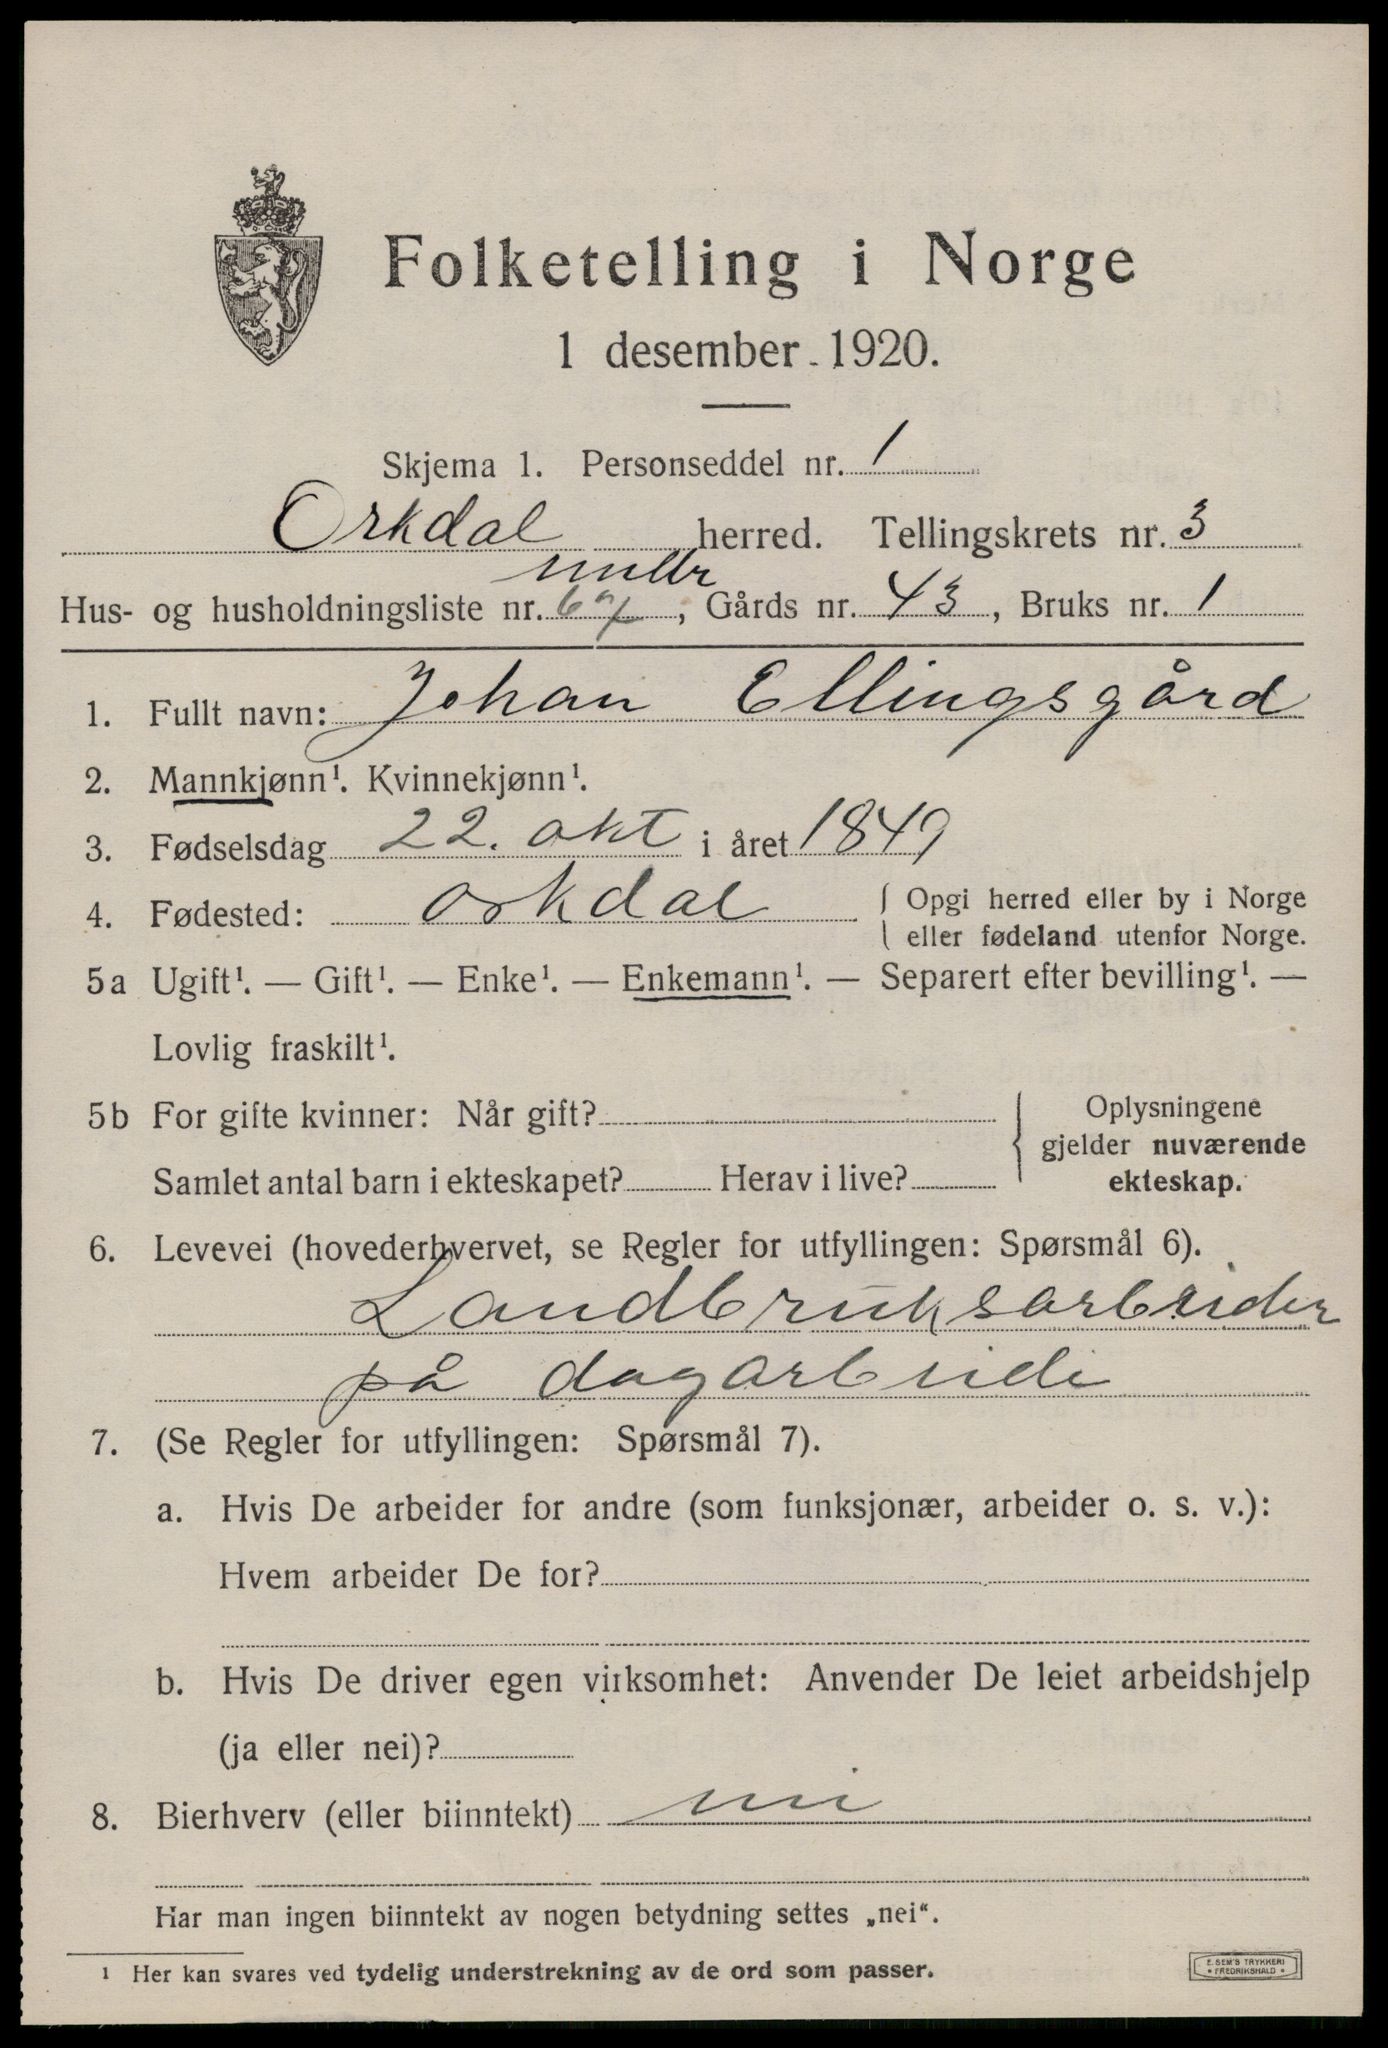 Folketelling i Norge
1 desember 1920.
Skjema 1. Personseddel nr. 1
Orkdal herred. Tellingskrets nr. 3
Hus- og husholdningsliste nr. , Gårds nr. 43, Bruks nr. 1
1. Fullt navn: Johan Ellingsgård
2. Mannkjønn¹. Kvinnekjønn¹.
3. Fødselsdag 22. okt i året 1849
4. Fødested: Orkdal { Opgi herred eller by i Norge
eller fødeland utenfor Norge.
5a Ugift¹. — Gift¹. — Enke¹. — Enkemann¹. — Separert efter bevilling¹. —
Lovlig fraskilt¹.
5b For gifte kvinner: Når gift?
Samlet antal barn i ekteskapet? Herav i live?
{ Oplysningene
gjelder nuværende
ekteskap.
6. Levevei (hovederhvervet, se Regler for utfyllingen: Spørsmål 6).
Landbruksarbeider
på dagarbeide
7. (Se Regler for utfyllingen: Spørsmål 7).
a. Hvis De arbeider for andre (som funksjonær, arbeider o. s. v.):
Hvem arbeider De for?
b. Hvis De driver egen virksomhet: Anvender De leiet arbeidshjelp
(ja eller nei)?
8. Bierhverv (eller biinntekt) nei
Har man ingen biinntekt av nogen betydning settes „nei“.
¹ Her kan svares ved tydelig understrekning av de ord som passer.
E. SEM'S TRYKKERI
• FREDRIKSHALD •